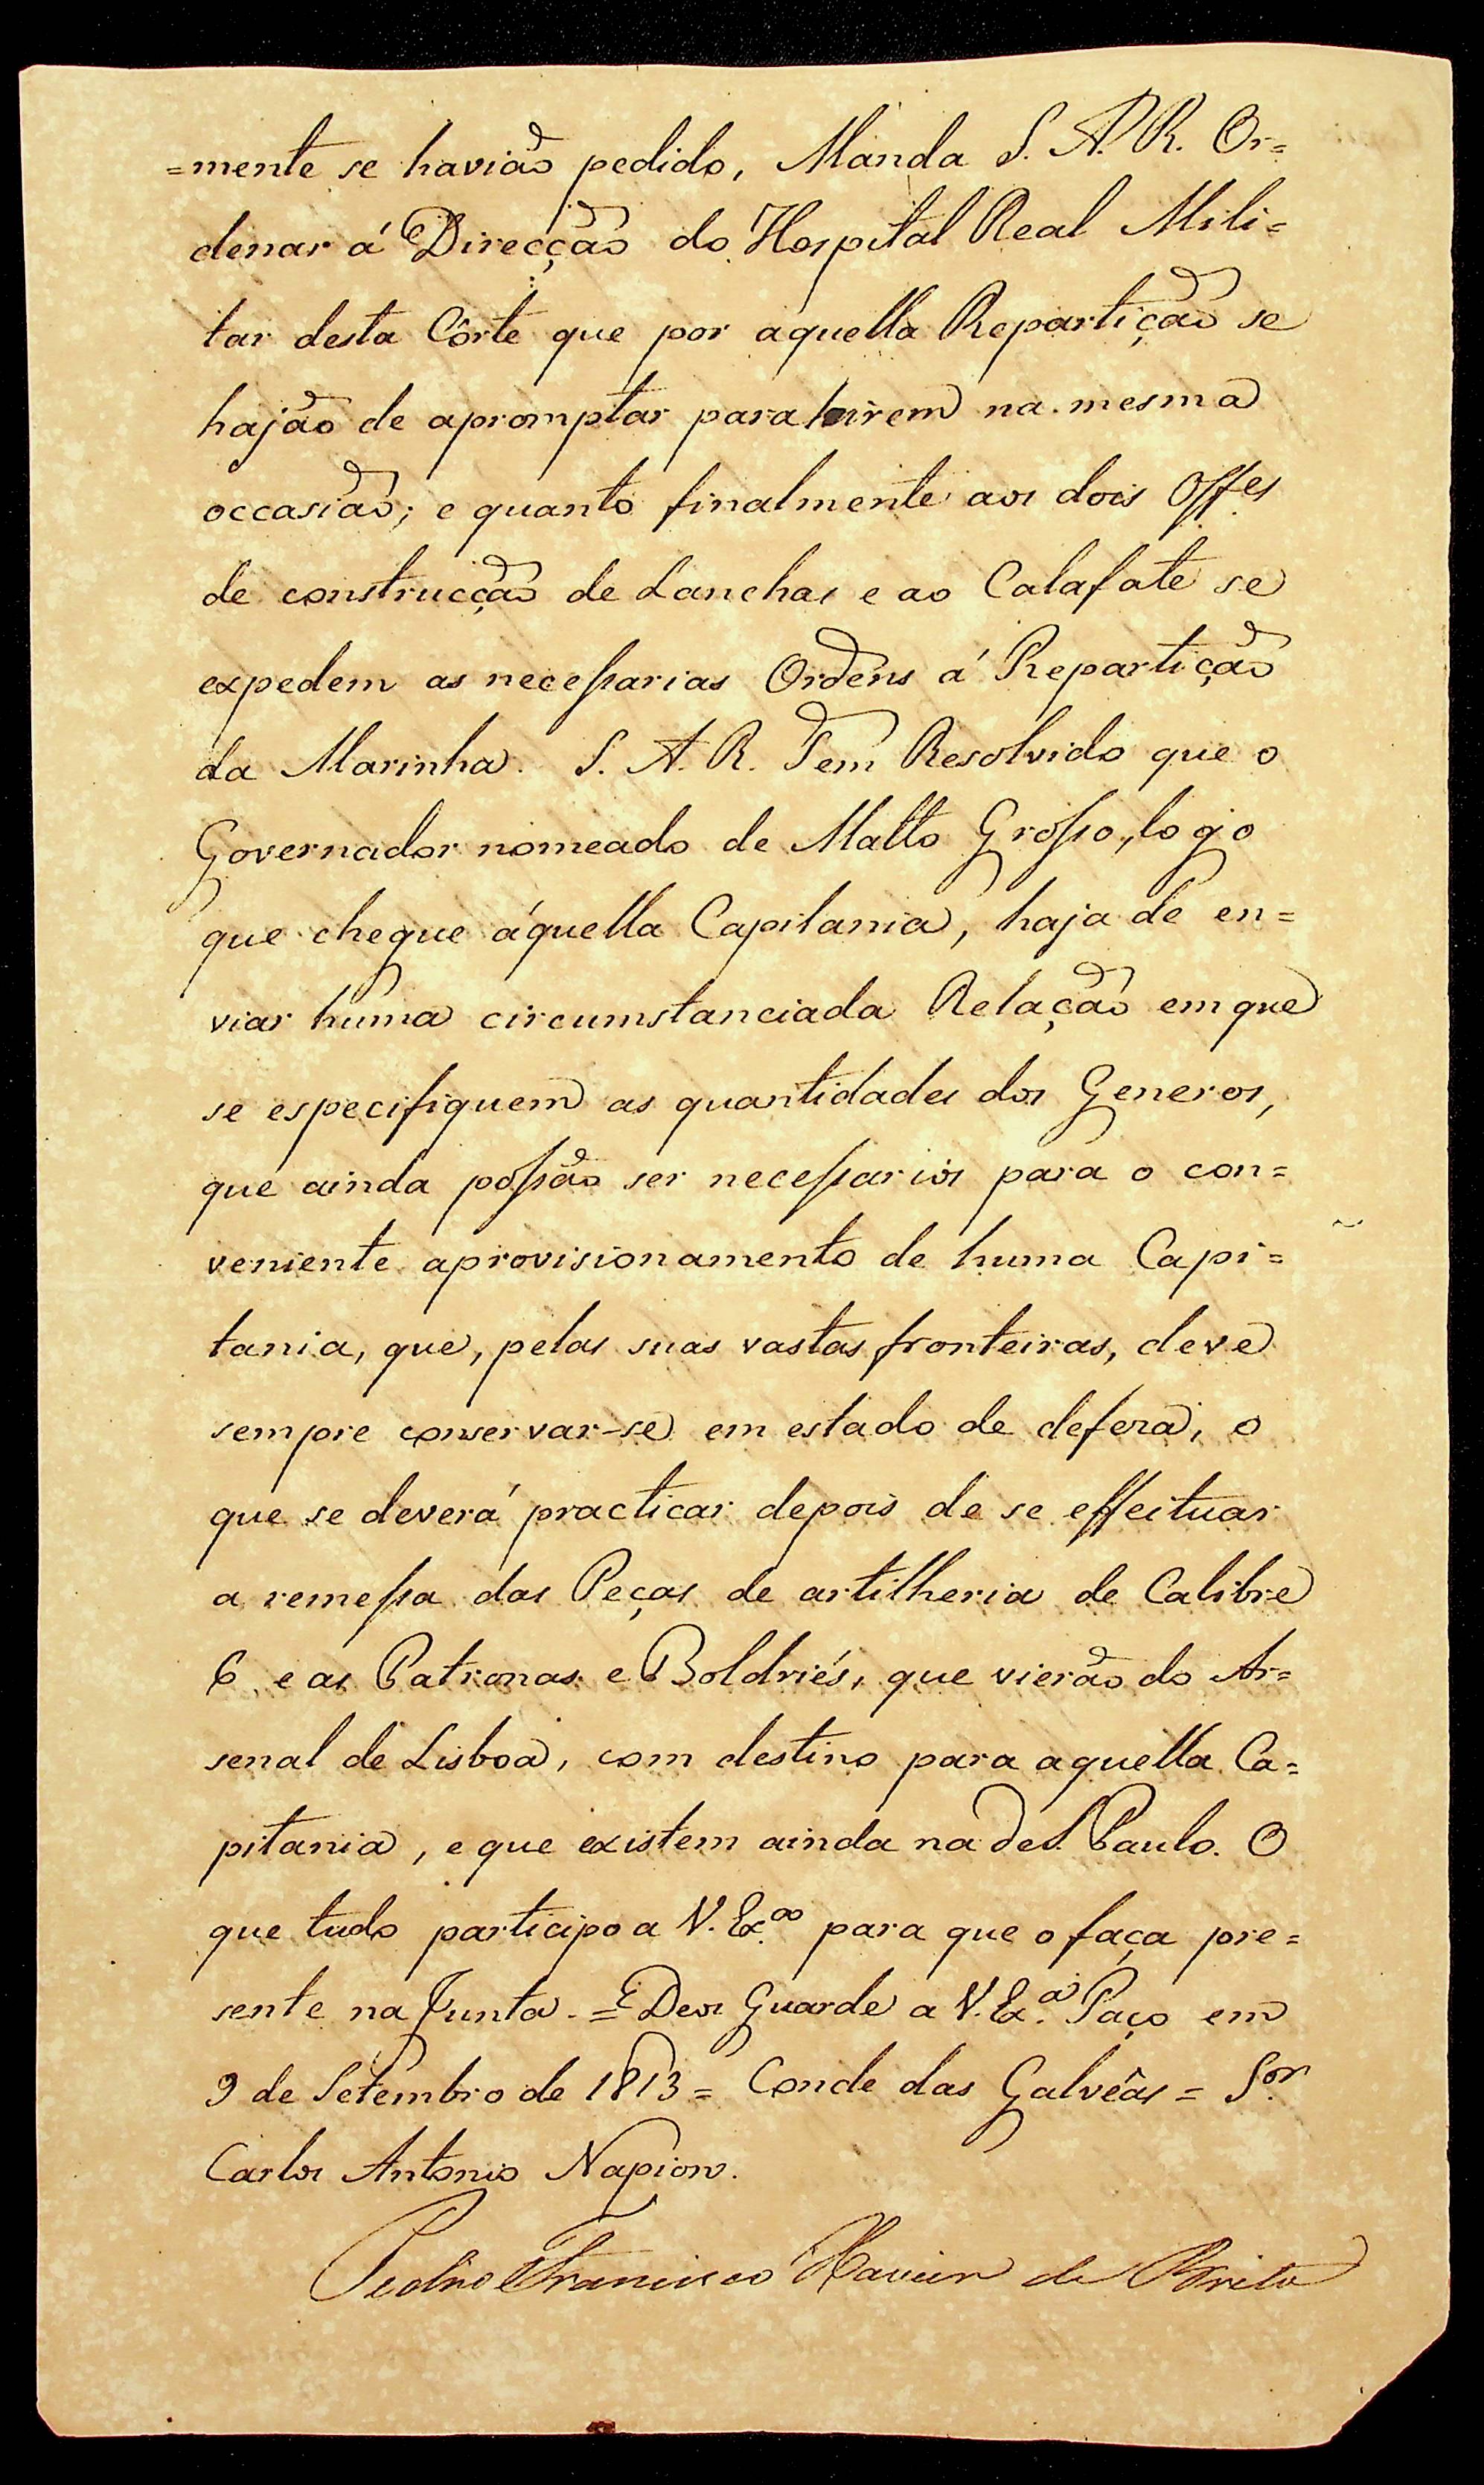 =mente se havião pedido, Manda S. A. R. Or=
denar á Direcção do Hospital Real Mili=
tar desta Côrte que por aquella Repartição se
hajão de apromptar para hirem na mesma
occasião; e quanto finalmente aos dois Off.es
de construcção de Lanchas e ao Calafate se
expedem as necessarias Ordens á Repartição
da Marinha. S. A. R. Tem Resolvido que o
Governador nomeado de Matto Grosso, logo
que chegue áquella Capitania, haja de en=
viar huma circumstanciada Relação em que
se especifiquem as quantidades dos Generos,
que ainda possão ser necessarios para o con=
veniente aprovisionamento de huma Capi=
tania, que, pelas suas vastas fronteiras, deve
sempre conservar-se em estado de defeza, o
que se deverá practicar depois de se effeituar
a remessa das Peças de artilheria de Calibre
6 e as Patronas e Boldriés, que vierão do Ar=
senal de Lisboa, com destino para aquella Ca=
pitania, e que existem ainda na de S. Paulo. O
que tudo participo a V. Ex.ª para que o faça pre=
sente na Junta. = Deos Guarde a V. Ex.ª Paço em
9 de Setembro de 1813 = Conde das Galvêas = S.or
Carlos Antonio Napion.
Pedro Francisco Xavier de Brito